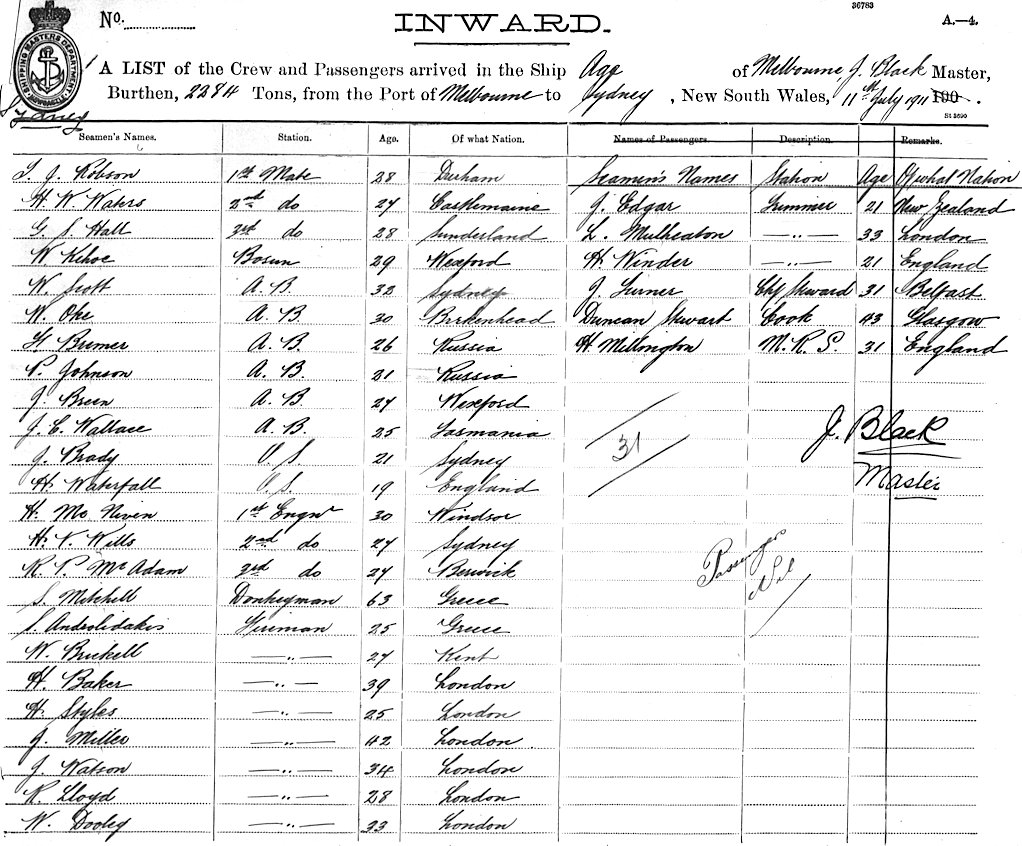 36783
No.
INWARD.
A.—4.
SHIPPING MASTERS DEPARTMENT
Sydney
A LIST of the Crew and Passengers arrived in the Ship Age of Melbourne J. Black Master,
Burthen, 2284 Tons, from the Port of Melbourne to Sydney, New South Wales, 11th July 1911 190 .
St 3690
Seamen's Names. Station. Age. Of what Nation. Names of Passengers. Description. Remarks.
Seamen's Names Station Age Of what Nation
T. J. Robson 1st Mate 28 Durham
H. W. Waters 2nd do 27 Castlemaine J. Edgar Trimmer 21 New Zealand
G. S. Hall 3rd do 28 Sunderland L. Mulheaton —„— 33 London
W Kehoe Bosun 29 Wexford H. Winder —„— 21 England
W. Scott A. B. 32 Sydney J. Turner Chf Steward 31 Belfast
W. Oke A. B. 30 Birkenhead Duncan Stewart Cook 43 Glasgow
H Bremer A. B. 26 Russia H. Millington M.R.S. 31 England
P. Johnson A. B. 21 Russia
J. Breen A. B. 27 Wexford
J. C. Wallace A. B. 25 Tasmania
J. Brady O. S. 21 Sydney
H. Waterfall O. S. 19 England
H. McNiven 1st Engnr 30 Windsor
H. V. Wills 2nd do 27 Sydney
R. P. McAdam 3rd do 27 Berwick
S. Mitchell Donkeyman 63 Greece
S. Androlidakis Fireman 25 Greece
W. Brickell —„— 27 Kent
H. Baker —„— 39 London
H. Styles —„— 25 London
J. Miller —„— 42 London
J. Watson —„— 34 London
R. Lloyd —„— 28 London
W. Dooley —„— 33 London
31
J. Black
Master
Passengers
Nil